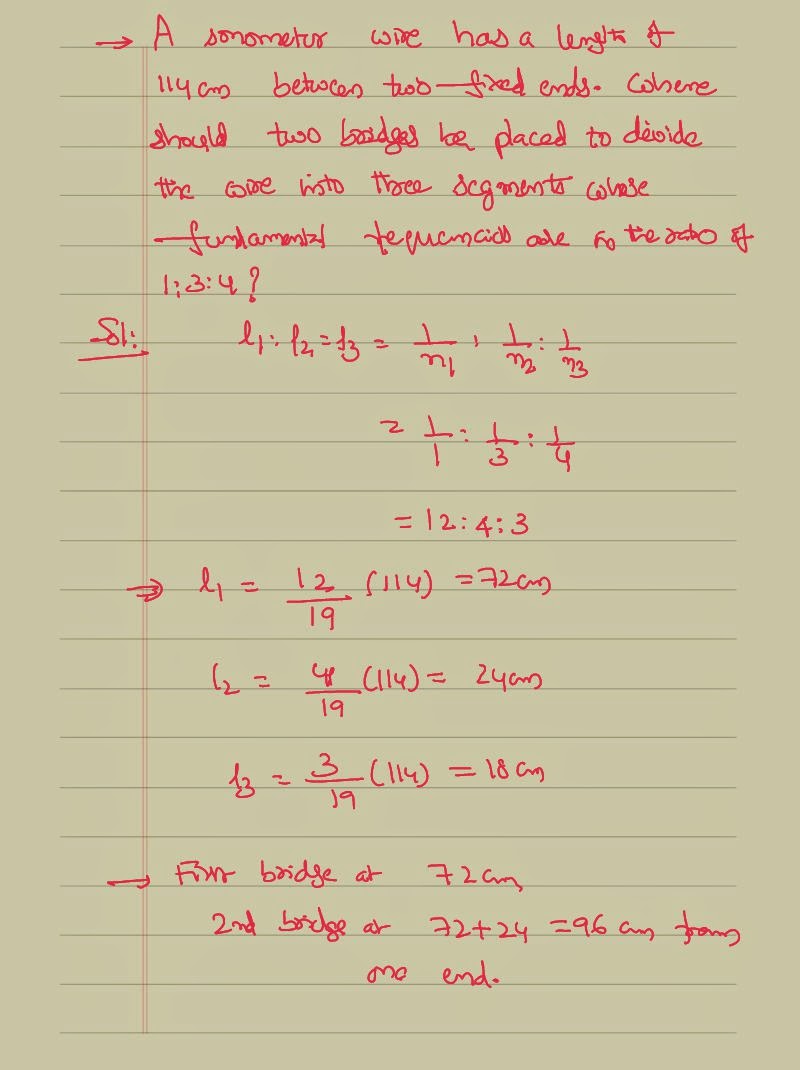 → A sonometer wire has a length of
114 cm between two fixed ends. Where
should two bridges be placed to divide
the wire into three segments whose
fundamental frequencies are in the ratio of
1:3:4?
Sol: l₁ : l₂ = l₃ = 1/n₁ : 1/n₂ : 1/n₃
= 1/1 : 1/3 : 1/4
= 12:4:3
⇒ l₁ = 12/19 (114) = 72cm
l₂ = 4/19 (114) = 24cm
l₃ = 3/19 (114) = 18 cm
→ First bridge at 72cm,
2nd bridge at 72+24 = 96 cm from
one end.